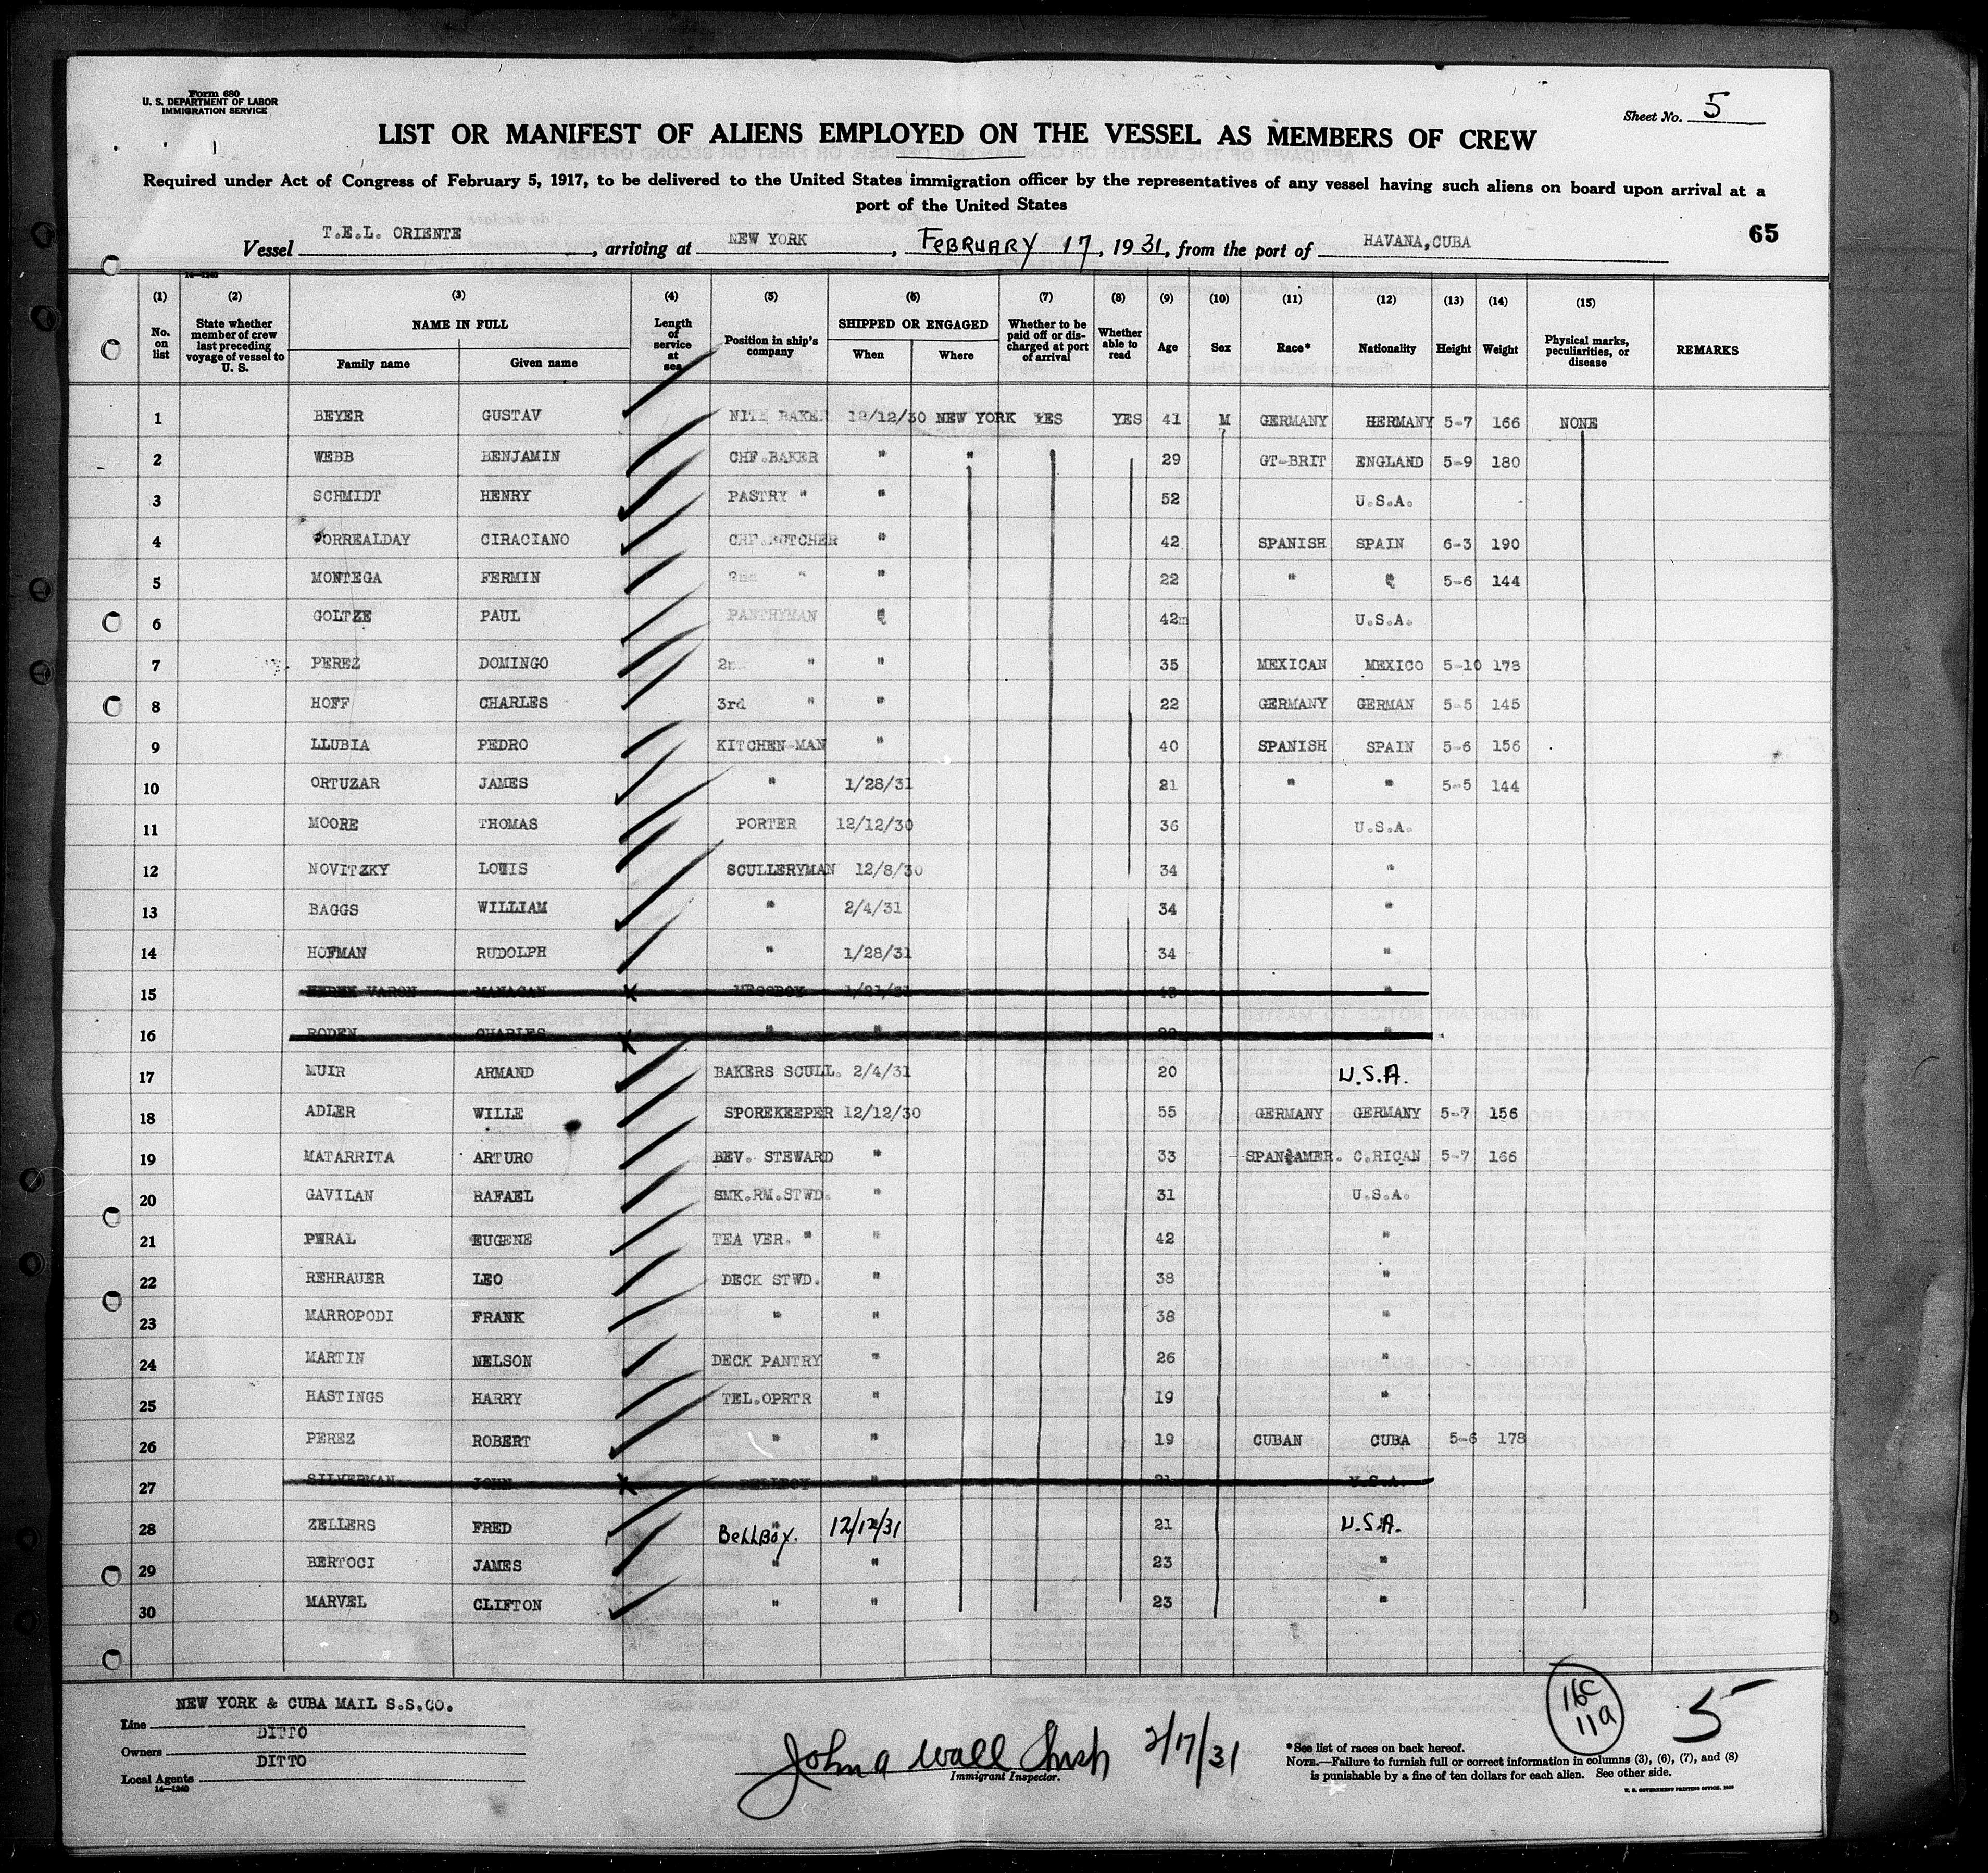 Form 680
U. S. DEPARTMENT OF LABOR
IMMIGRATION SERVICE
Sheet No. 5
LIST OR MANIFEST OF ALIENS EMPLOYED ON THE VESSEL AS MEMBERS OF CREW
Required under Act of Congress of February 5, 1917, to be delivered to the United States immigration officer by the representatives of any vessel having such aliens on board upon arrival at a
port of the United States
Vessel T.E.L. ORIENTE, arriving at NEW YORK, FEBRUARY 17, 1931, from the port of HAVANA,CUBA 65
(1) (2) (3) (4) (5) (6) (7) (8) (9) (10) (11) (12) (13) (14) (15)
No. on list State whether member of crew last preceding voyage of vessel to U. S. NAME IN FULL Family name Given name Length of service at sea Position in ship's company SHIPPED OR ENGAGED When Where Whether to be paid off or discharged at port of arrival Whether able to read Age Sex Race* Nationality Height Weight Physical marks, peculiarities, or disease REMARKS
1 BEYER GUSTAV NITE BAKER 12/12/30 NEW YORK YES YES 41 M GERMANY GERMANY 5-7 166 NONE
2 WEBB BENJAMIN CHF.BAKER " " 29 GT-BRIT ENGLAND 5-9 180
3 SCHMIDT HENRY PASTRY " " 52 U.S.A.
4 TORREALDAY CIRACIANO CHF.BUTCHER " 42 SPANISH SPAIN 6-3 190
5 MONTEGA FERMIN 2nd " " 22 " " 5-6 144
6 GOLTZE PAUL PANTHYMAN " 42m U.S.A.
7 PEREZ DOMINGO 2nd " " 35 MEXICAN MEXICO 5-10 178
8 HOFF CHARLES 3rd " " 22 GERMANY GERMAN 5-5 145
9 LLUBIA PEDRO KITCHEN-MAN " 40 SPANISH SPAIN 5-6 156
10 ORTUZAR JAMES " 1/28/31 21 " " 5-5 144
11 MOORE THOMAS PORTER 12/12/30 36 U.S.A.
12 NOVITZKY LOUIS SCULLERYMAN 12/8/30 34 "
13 BAGGS WILLIAM " 2/4/31 34 "
14 HOFMAN RUDOLPH " 1/28/31 34 "
15 VARON MANAGAN MESSBOY 1/21/31 "
16 RODEN CHARLES " " "
17 MUIR ARMAND BAKERS SCULL. 2/4/31 20 U.S.A.
18 ADLER WILLE SPOREKEEPER 12/12/30 55 GERMANY GERMANY 5-7 156
19 MATARRITA ARTURO BEV. STEWARD " 33 SPAN.AMER. C.RICAN 5-7 166
20 GAVILAN RAFAEL SMK.RM.STWD. " 31 U.S.A.
21 PERAL EUGENE TEA VER. " " 42 "
22 REHRAUER LEO DECK STWD. " 38 "
23 MARROPODI FRANK " " 38 "
24 MARTIN NELSON DECK PANTRY " 26 "
25 HASTINGS HARRY TEL.OPRTR " 19 "
26 PEREZ ROBERT " " 19 CUBAN CUBA 5-6 178
27 SILVERMAN JOHN BELLBOY " 21 U.S.A.
28 ZELLERS FRED BELLBOY. 12/12/31 21 U.S.A.
29 BERTOCI JAMES " " 23 "
30 MARVEL CLIFTON " " 23 "
Line NEW YORK & CUBA MAIL S.S.CO.
Owners DITTO
Local Agents DITTO
14—1240
John a Wall 2/17/31
Immigrant Inspector.
16c
11a
5
*See list of races on back hereof.
NOTE.—Failure to furnish full or correct information in columns (3), (6), (7), and (8)
is punishable by a fine of ten dollars for each alien. See other side.